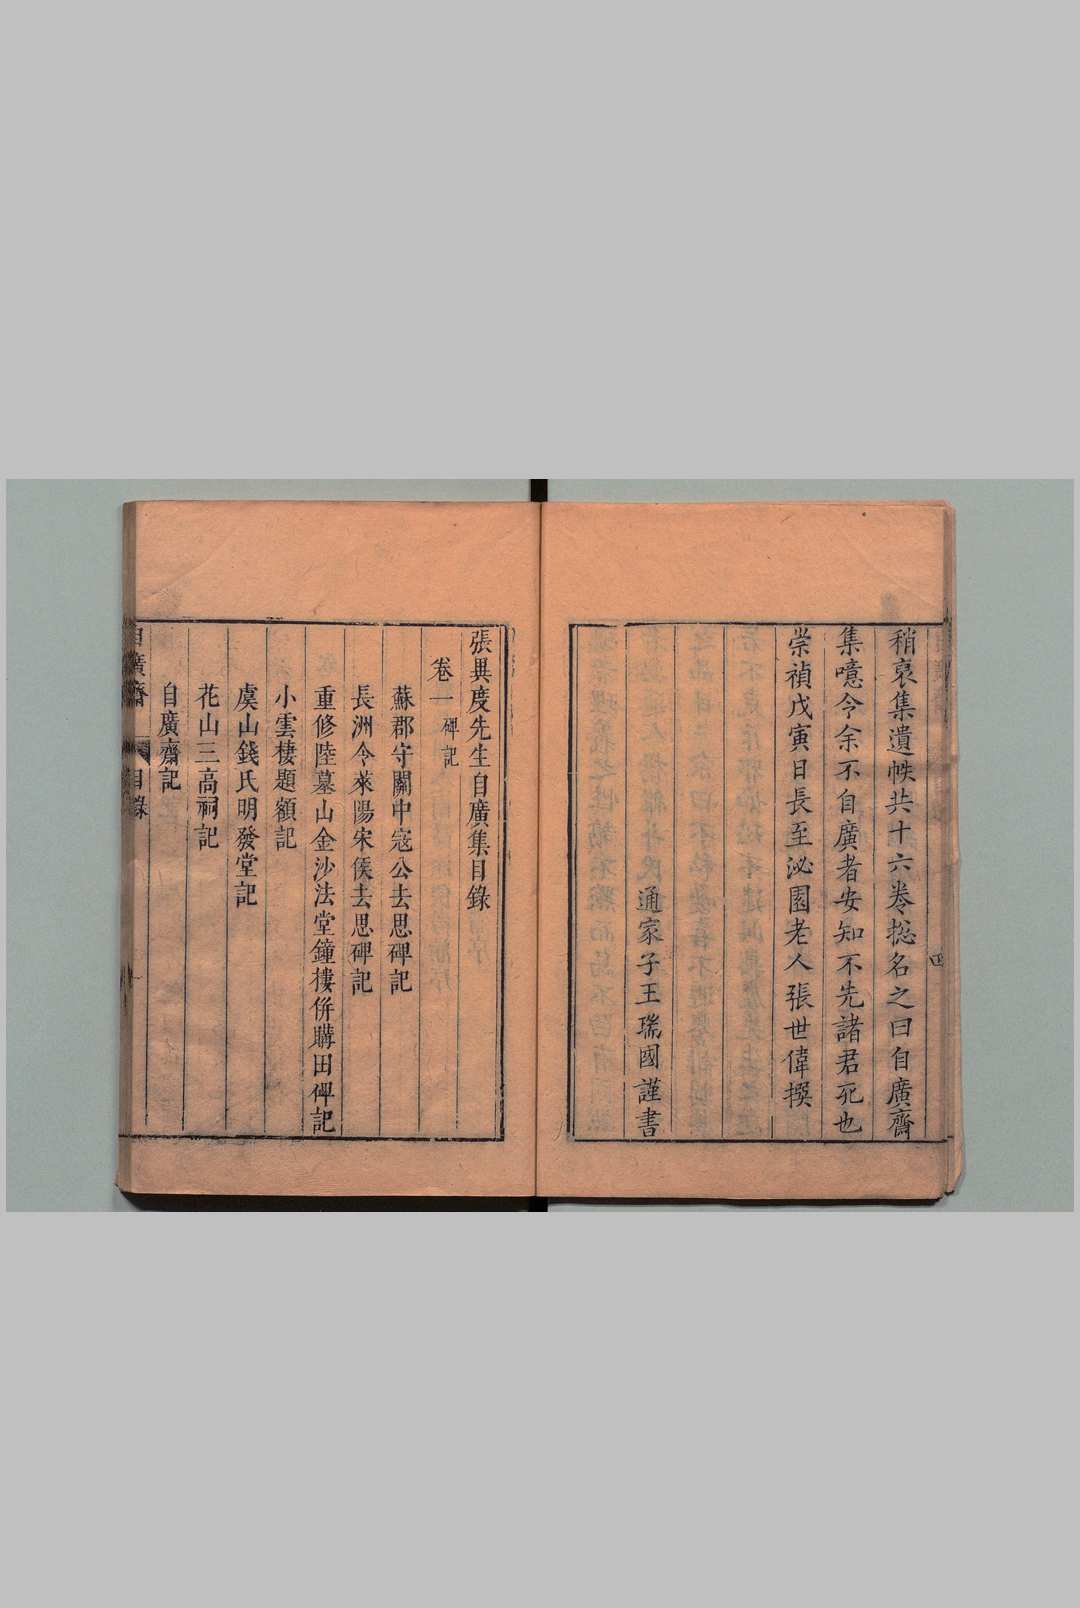 稍裒集遺帙共十六卷緫名之曰自廣齋
集噫今余不自廣者安知不先諸君死也
崇禎戊寅日長至泌園老人張世偉撰
通家子王瑞國謹書
四
張異度先生自廣集目錄
卷一 碑記
蘇郡守關中寇公去思碑記
長洲令萊陽宋侯去思碑記
重修陸墓山金沙法堂鐘樓併購田碑記
小雲棲題額記
虞山錢氏明發堂記
花山三高祠記
自廣齋記
自廣齋 目錄 一